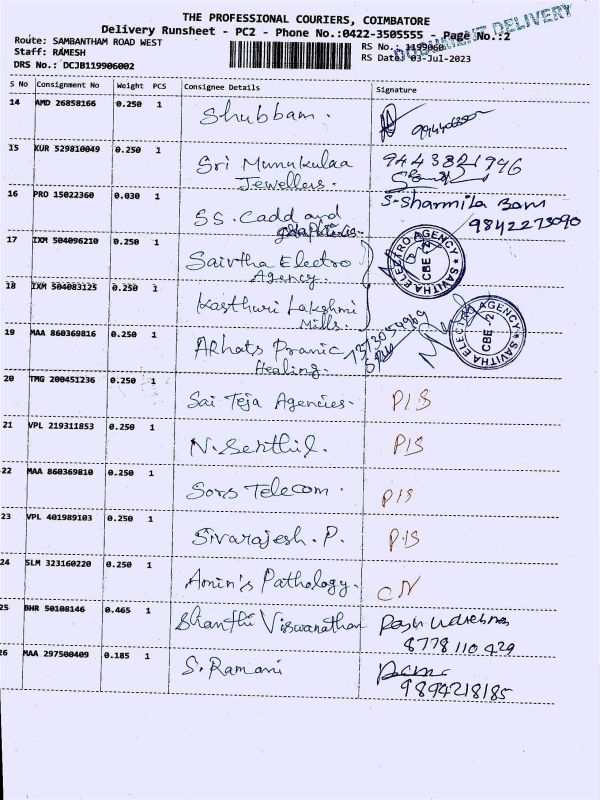 THE PROFESSIONAL COURIERS, COIMBATORE
Delivery Runsheet - PC2 - Phone No.:0422-3505555 - Page No.:2
DOCUMENT DELIVERY
Route: SAMBANTHAM ROAD WEST
RS No.: 1199060
Staff: RAMESH
RS Date: 03-Jul-2023
DRS No.: DCJB119906002
S No Consignment No Weight PCS Consignee Details Signature
14 AMD 26858166 0.250 1 Shubbam.
15 KUR 529810049 0.250 1 Sri Munukulaa 9443821946
Jewellers.
16 PRO 15022360 0.030 1 SS. Cadd and S-Sharmila Banu
graphics. 9842273090
17 IXM 504096210 0.250 1 Saivtha Electro
Agency.
SAVITHA ELECTRO AGENCY CBE-12
18 IXM 504083125 0.250 1 Kasthuri Lakshmi
Mills.
SAVITHA ELECTRO AGENCY CBE-12
19 MAA 860369816 0.250 1 Arhats Pranic
Healing.
20 TMG 200451236 0.250 1 Sai Teja Agencies. P/S
21 VPL 219311853 0.250 1 N. Senthil. P/S
22 MAA 860369810 0.250 1 Sors Telecom. P/S
23 VPL 401989103 0.250 1 Sivarajesh. P. P/S
24 SLM 323160220 0.250 1 Amin's Pathology. CN
25 BHR 50108146 0.465 1 Shanthi Viswanathan
8778 110 429
26 MAA 297500409 0.185 1 S. Ramani
9894218185